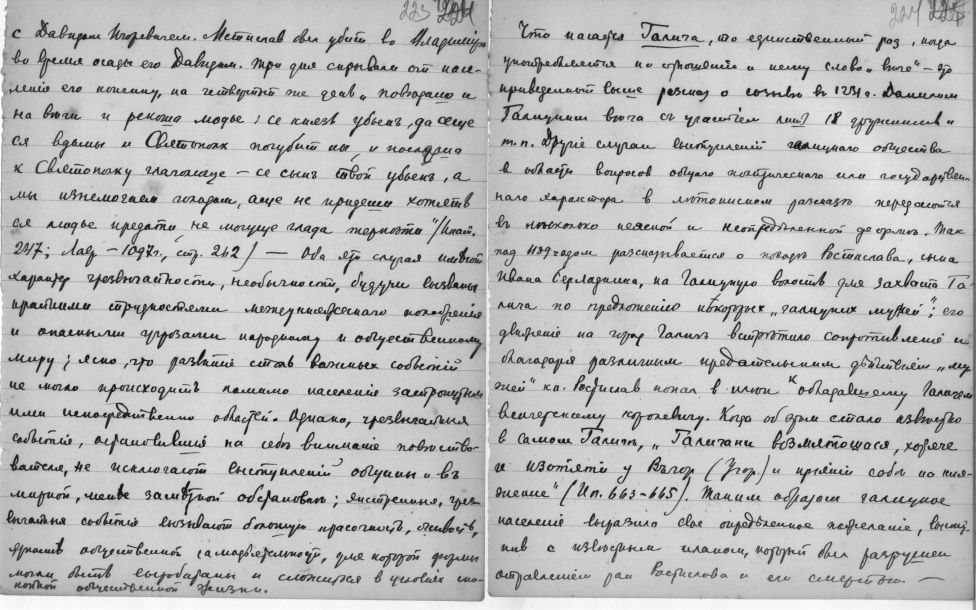 223 224
с Давидом Игоревичем. Мстислав был убит во Владимире
во время осады его Давидом. Три дня скрывали от насе-
ления его кончину, на четвертый же день „поведано и
на вѣчи и рекоша людье: се князь убьенъ, да аще
ся вдамы и Святополк погубит ны, и послаша
к Святополку глаголюще – се сынъ твой убьенъ, а
мы изнемогаем гладом, аще не придеши хотять
ся людье предати не могуще глада терпѣти" (Ипат.
247; Лавр – 1097 г., стр. 262) – Оба эти случая имѣют
характер чрезвычайности, необычности, будучи вызваны
крайними трудностями междукняжеского положения
и опасными угрозами народному и общественному
миру; ясно, что развитие столь важных событий
не могло происходить помимо населения
или непосредственно области. Однако, чрезвычайныя
события, остановившия на себѣ внимание повѣство-
вателя, не исключают выступлений общины и въ
мирной, менѣе замѣтной обстановкѣ; чрез-
вычайныя события вызывают большую красочность, живость,
общественной самодѣятельности, для которой формы
могли быть выработаны и сложиться в условиях спо-
койной общественной жизни.
224 225
Что касается Галича, то единственный раз, когда
употребляется по отношению к нему слово „вѣче" – это
приведенный выше рассказ о созывѣ в 1231 г. Данилом
Галицким вѣча съ участием лишь 18 дружинников и
т.п. Другие случаи выступлений галицкаго общества
в области вопросов общаго политическаго или государствен-
наго характера в лѣтописном рассказѣ передаются
въ нѣсколько неясной и неопредѣленной формѣ. Так
под 1189 годом рассказывается о походѣ Ростислава, сына
Ивана Берладника, на Галицкую волость для захвата Га-
лича по предложению нѣкоторых „галицких мужей"; его
движение на город Галич встрѣтило сопротивление и
благодаря различным предательским дѣйствиям „му-
жей" кн. Ростислав попал в плѣн к обладавшему Галичем
венгерскому королевичу. Когда об этом стало извѣстно
в самом Галичѣ, „Галичани возмятошася, хотяче
и изотяти у Вѣгор (Угор) и прияти собѣ на кня-
жение" (Ип. 663–665). Таким образом галицкое
население выразило свое опредѣленное пожелание, высту-
пив с извѣстным планом, который был разрушен
отравлением ран Ростислава и его смертью. –